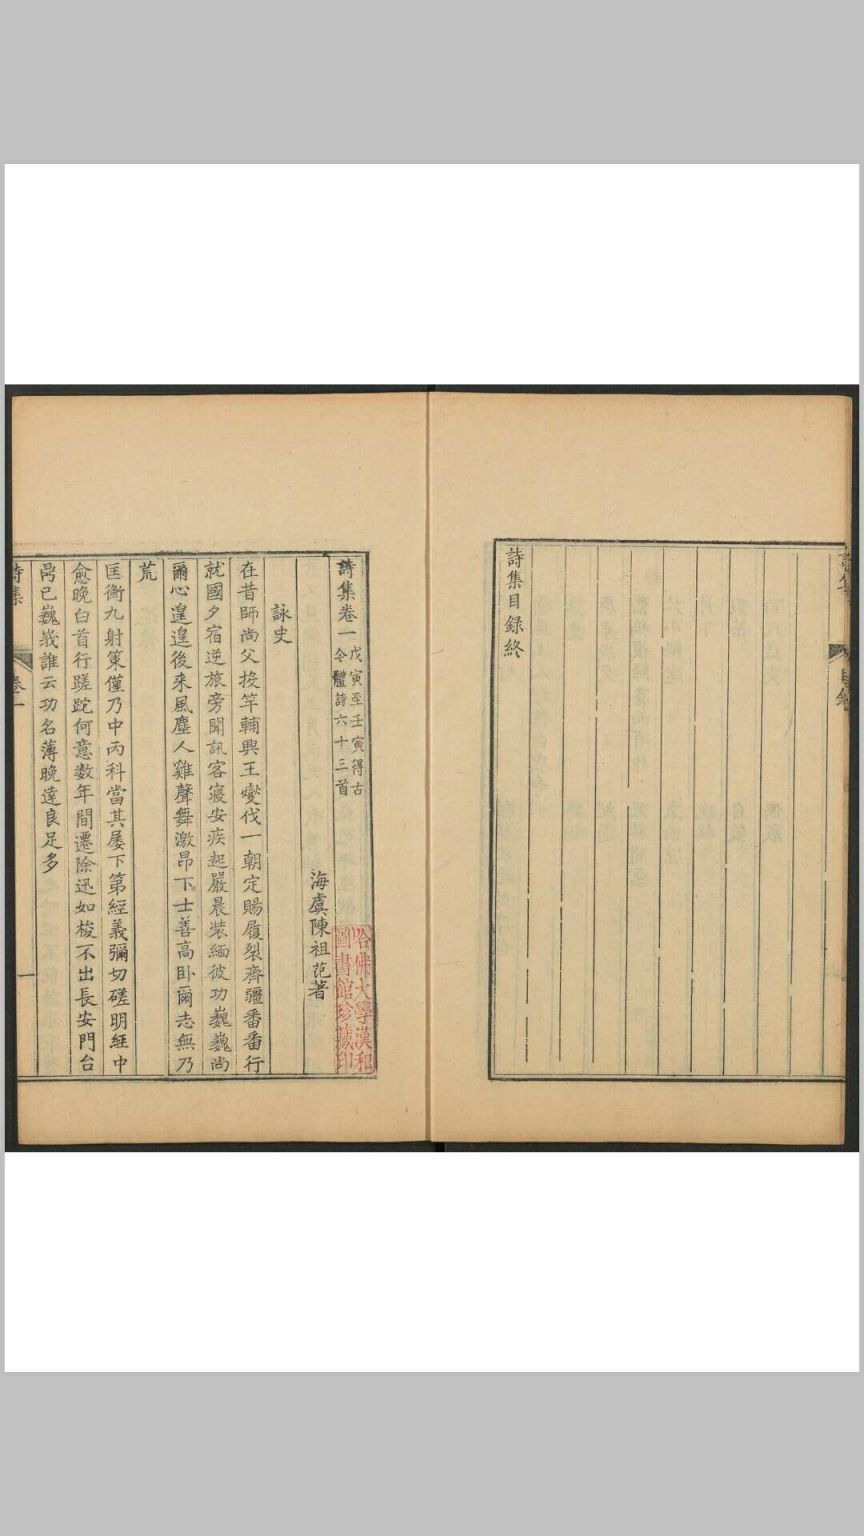 詩集目録終
詩集卷一
戊寅至壬寅得古
今體詩六十三首
海虞陳祖范著
詠史
在昔師尚父投竿輔興王燮伐一朝定賜履裂齊疆番番行
就國夕宿逆旅旁聞訊客寢安疾起嚴晨裝緬彼功巍巍尚
爾心遑遑後來風塵人雞聲舞激昂下士善高卧爾志無乃
荒
匡衡九射策僅乃中丙科當其屡下第經義彌切磋明經中
愈晚白首行蹉跎何意数年間遷除迅如梭不出長安門台
鼎已巍峩誰云功名薄晚達良足多
詩集
卷一
一
哈佛大學漢和
圖書館珍藏印